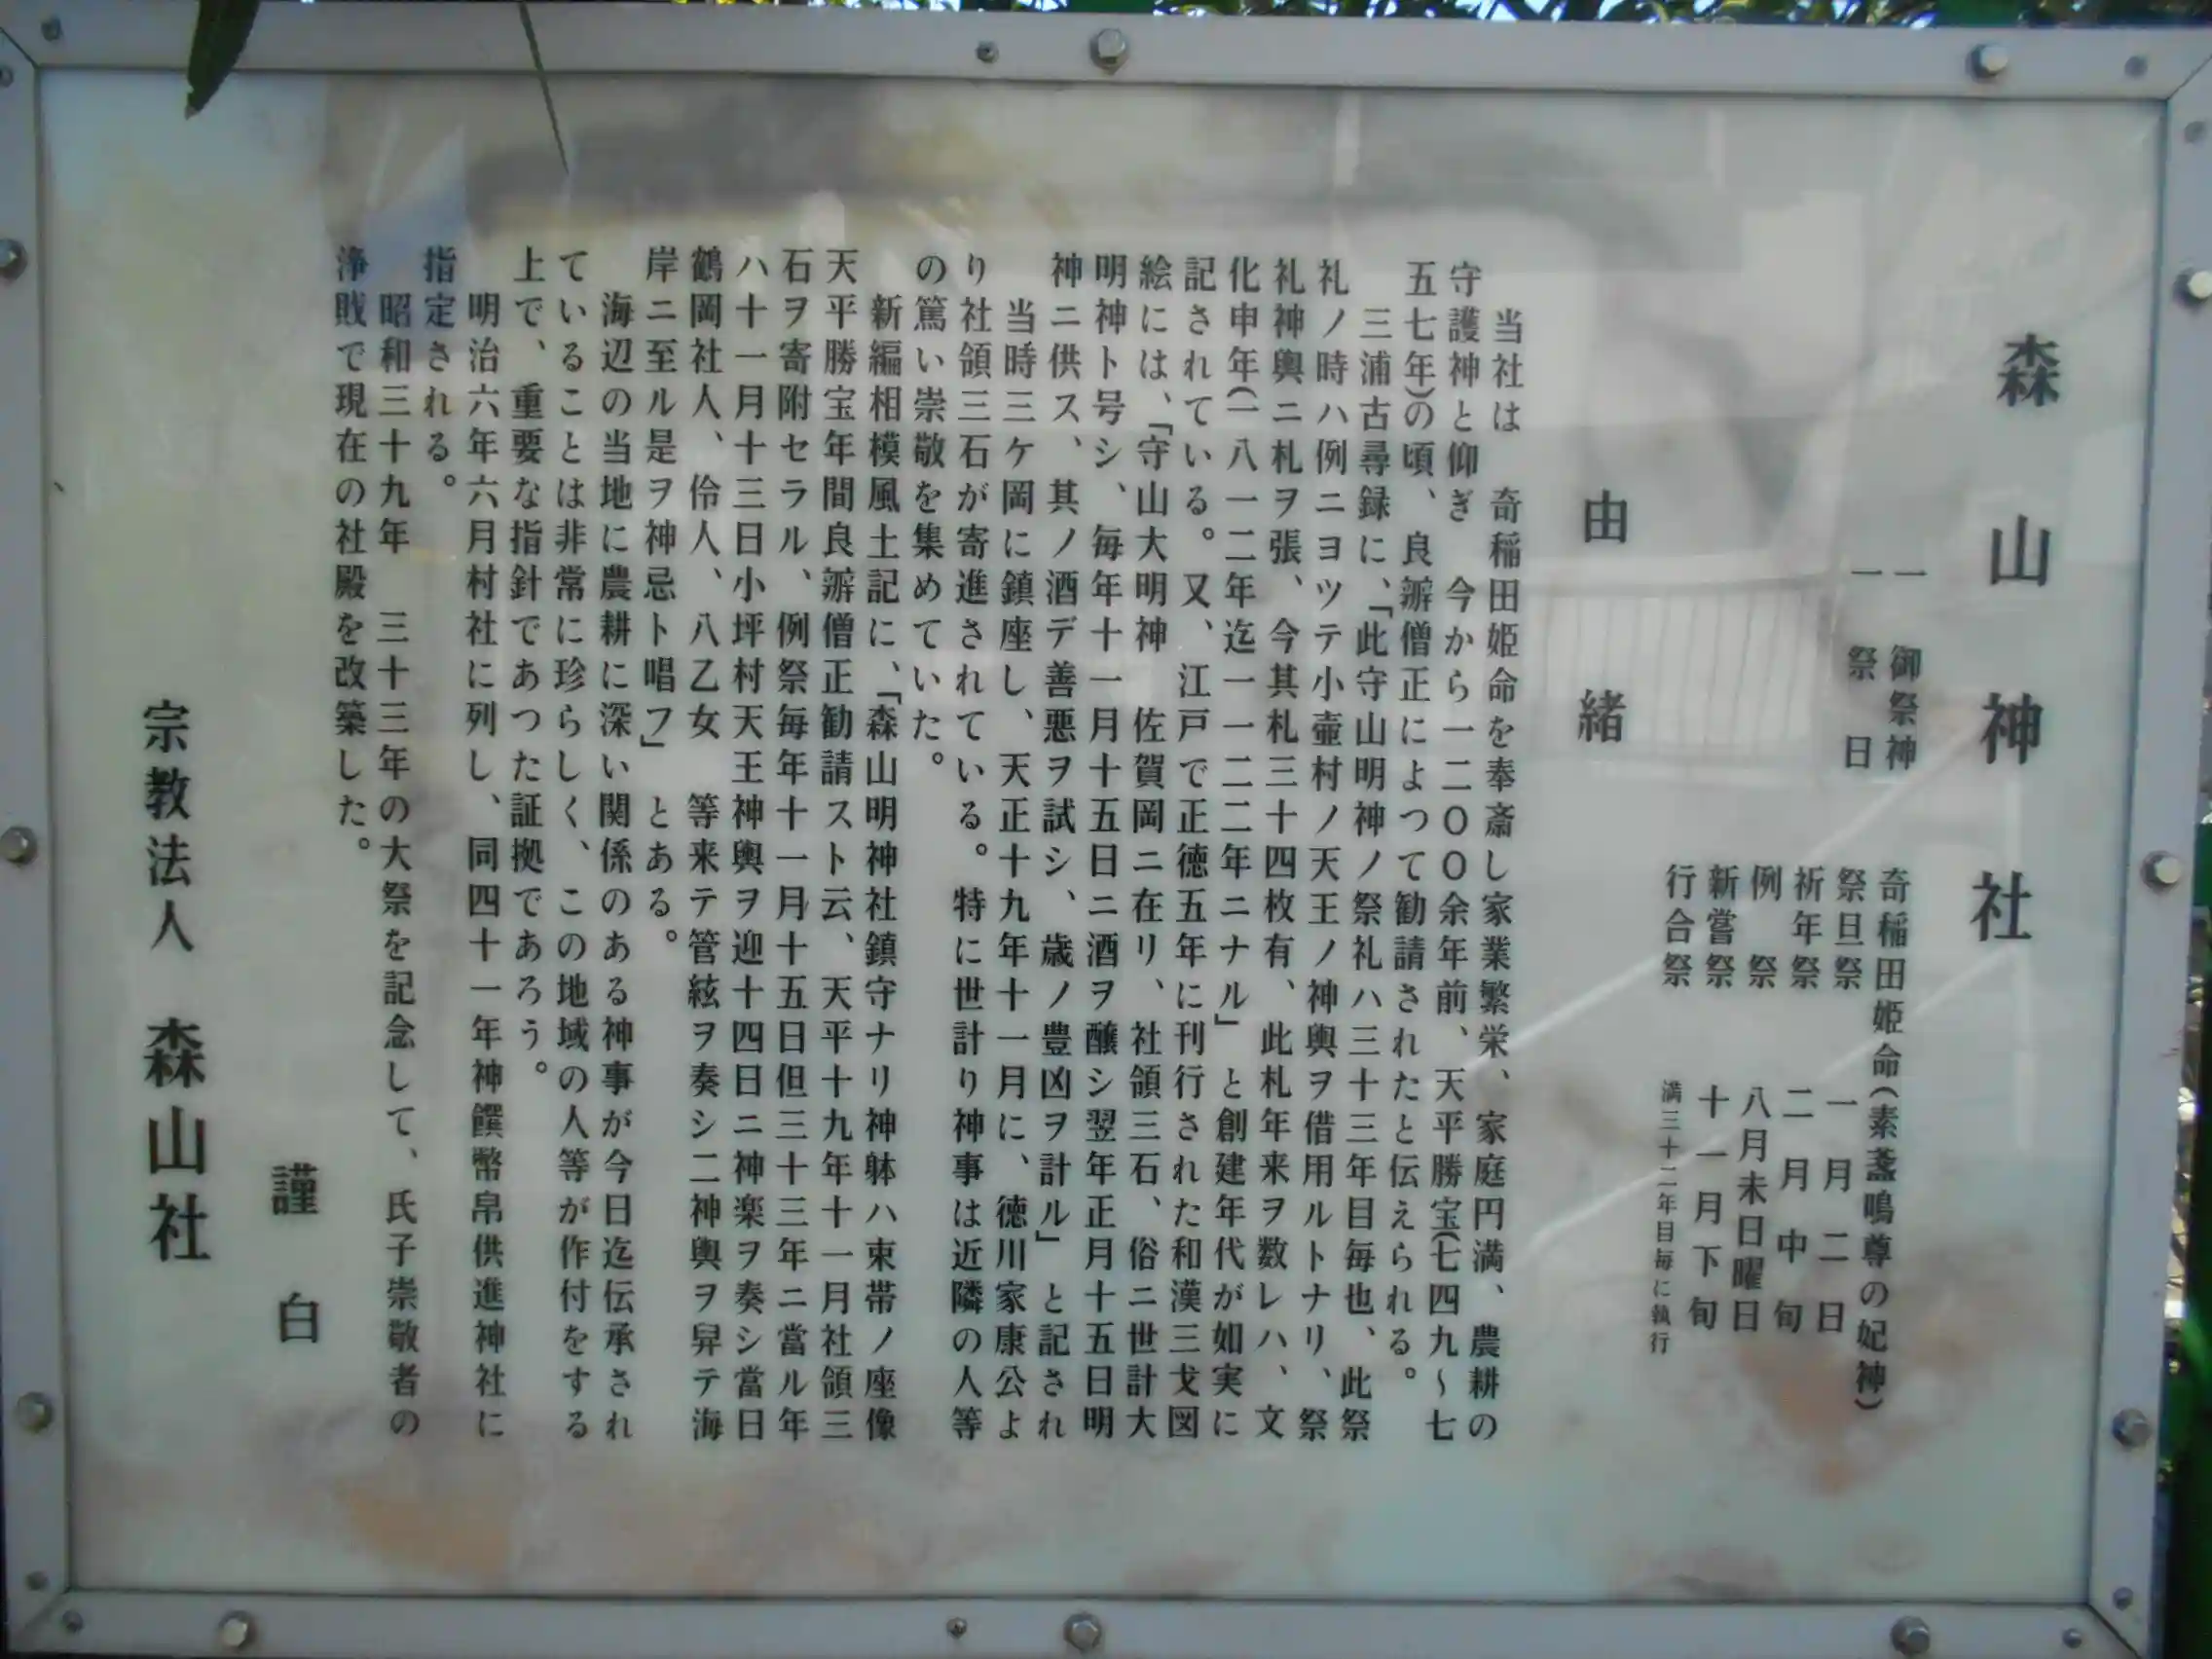 森山神社
一 御祭神 奇稲田姫命(素盞鳴尊の妃神)
一 祭日 祭旦祭 一月二日
祈年祭 二月中旬
例祭 八月末日曜日
新嘗祭 十一月下旬
行合祭 満三十二年目毎に執行
由緒
当社は 奇稲田姫命を奉斎し家業繁栄、家庭円満、農耕の
守護神と仰ぎ 今から一二〇〇余年前、天平勝宝(七四九〜七
五七年)の頃、良辧僧正によつて勧請されたと伝えられる。
三浦古尋録に、「此守山明神ノ祭礼ハ三十三年目毎也、此祭
礼ノ時ハ例ニヨツテ小壷村ノ天王ノ神輿ヲ借用ルトナリ、祭
礼神輿ニ札ヲ張、今其札三十四枚有、此札年来ヲ数レハ、文
化申年(一八一二年迄一一二二年ニナル」と創建年代が如実に
記されている。又、江戸で正徳五年に刊行された和漢三戈図
絵には、「守山大明神 佐賀岡ニ在リ、社領三石、俗ニ世計大
明神ト号シ、毎年十一月十五日ニ酒ヲ醸シ翌年正月十五日明
神ニ供ス、其ノ酒デ善悪ヲ試シ、歳ノ豊凶ヲ計ル」と記され
当時三ケ岡に鎮座し、天正十九年十一月に、徳川家康公よ
り社領三石が寄進されている。特に世計り神事は近隣の人等
の篤い崇敬を集めていた。
新編相模風土記に、「森山明神社鎮守ナリ神躰ハ束帯ノ座像
天平勝宝年間良辧僧正勧請スト云、天平十九年十一月社領三
石ヲ寄附セラル、例祭毎年十一月十五日但三十三年ニ當ル年
ハ十一月十三日小坪村天王神輿ヲ迎十四日ニ神楽ヲ奏シ當日
鶴岡社人、伶人、八乙女 等来テ管絃ヲ奏シ二神輿ヲ舁テ海
岸ニ至ル是ヲ神忌ト唱フ」とある。
海辺の当地に農耕に深い関係のある神事が今日迄伝承され
ていることは非常に珍らしく、この地域の人等が作付をする
上で、重要な指針であつた証拠であろう。
明治六年六月村社に列し、同四十一年神饌幣帛供進神社に
指定される。
昭和三十九年 三十三年の大祭を記念して、氏子崇敬者の
浄戝で現在の社殿を改築した。
謹白
宗教法人 森山社